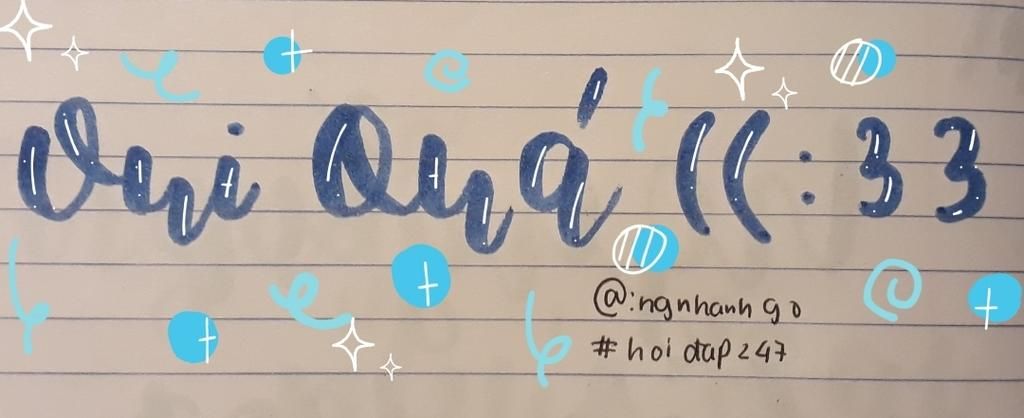 Vui Quá ((:33
@:ngnhanh go
#hoi đap247